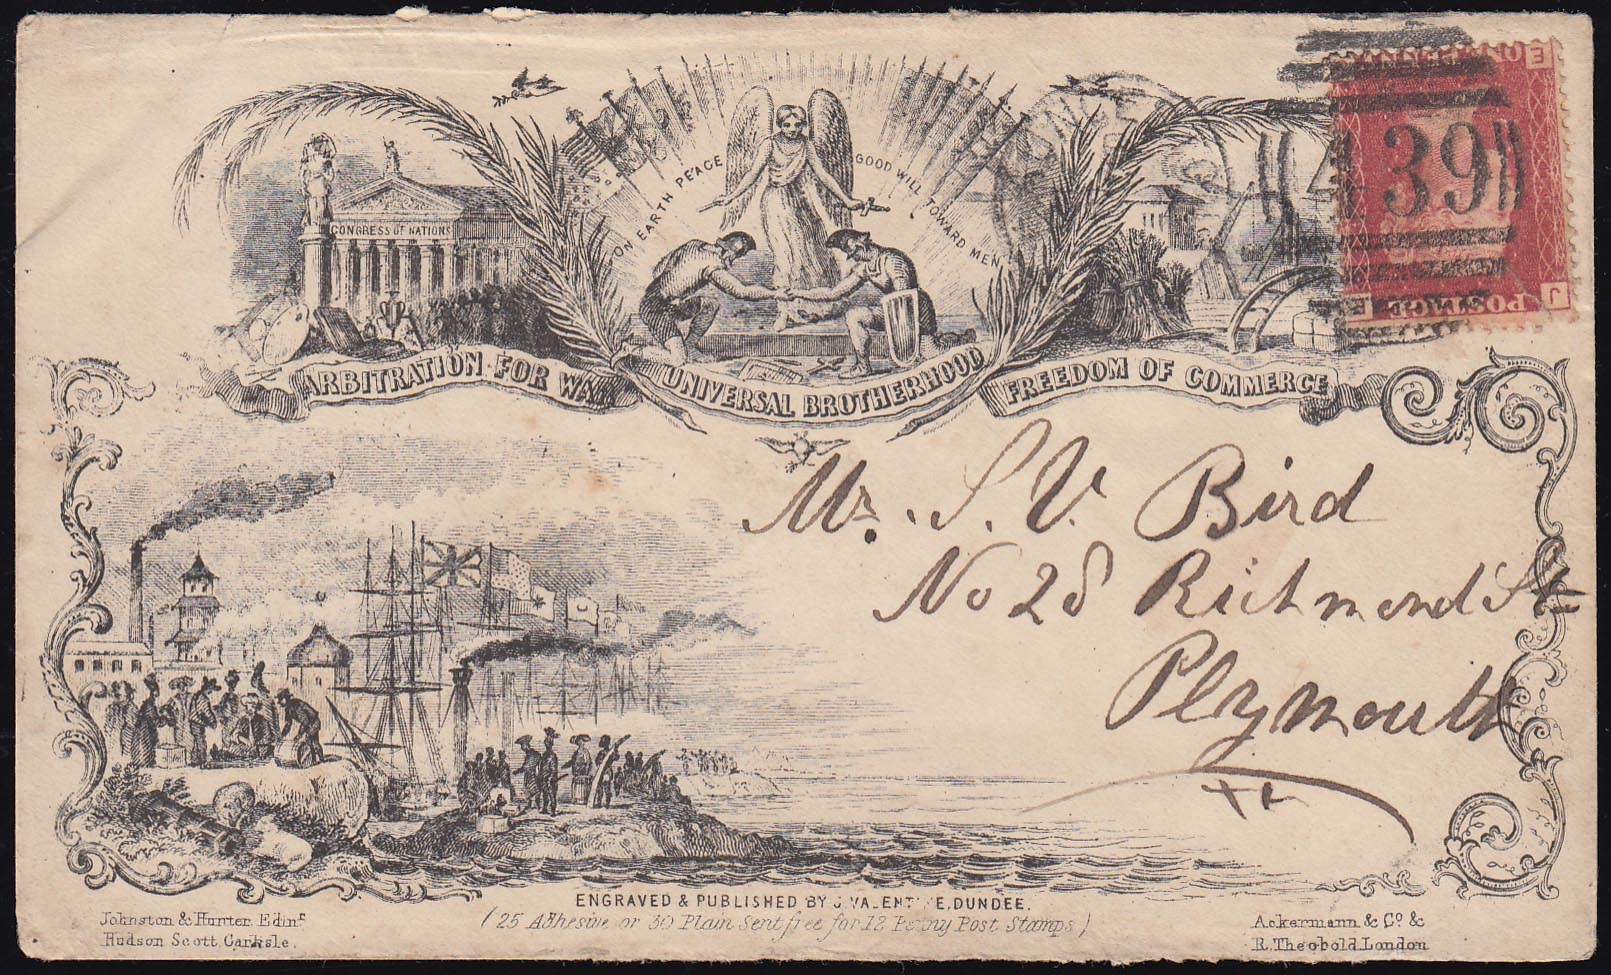 CONGRESS OF NATIONS
ON EARTH PEACE
GOOD WILL TOWARD MEN
ARBITRATION FOR WAR
UNIVERSAL BROTHERHOOD
FREEDOM OF COMMERCE
E
ONE PENNY
439
J
POSTAGE
E
Mr. S. V. Bird
No 28 Richmond St
Plymouth
ENGRAVED & PUBLISHED BY J. VALENTINE, DUNDEE.
(25 Adhesive or 30 Plain Sent free for 12 Penny Post Stamps)
Johnston & Hunter Edinr.
Hudson Scott, Carlisle.
Ackermann & Co. &
R. Theobold London